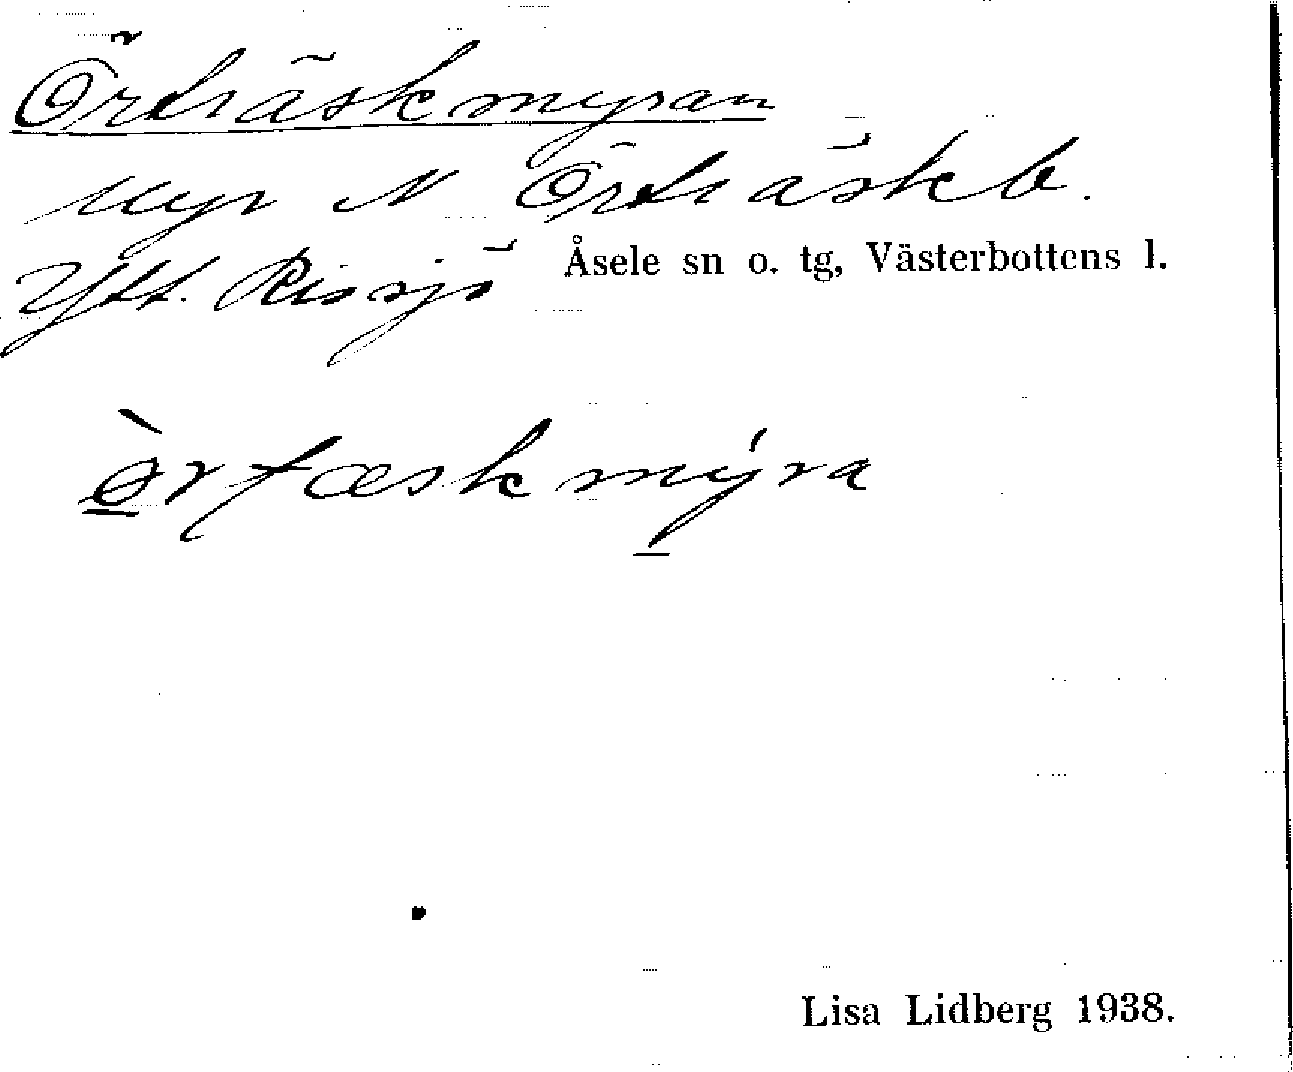 Örträskmyran
Myr N Örträskb.
Ytt. Rissjö Åsele sn o. tg, Västerbottens l.
Lisa Lidberg 1938.